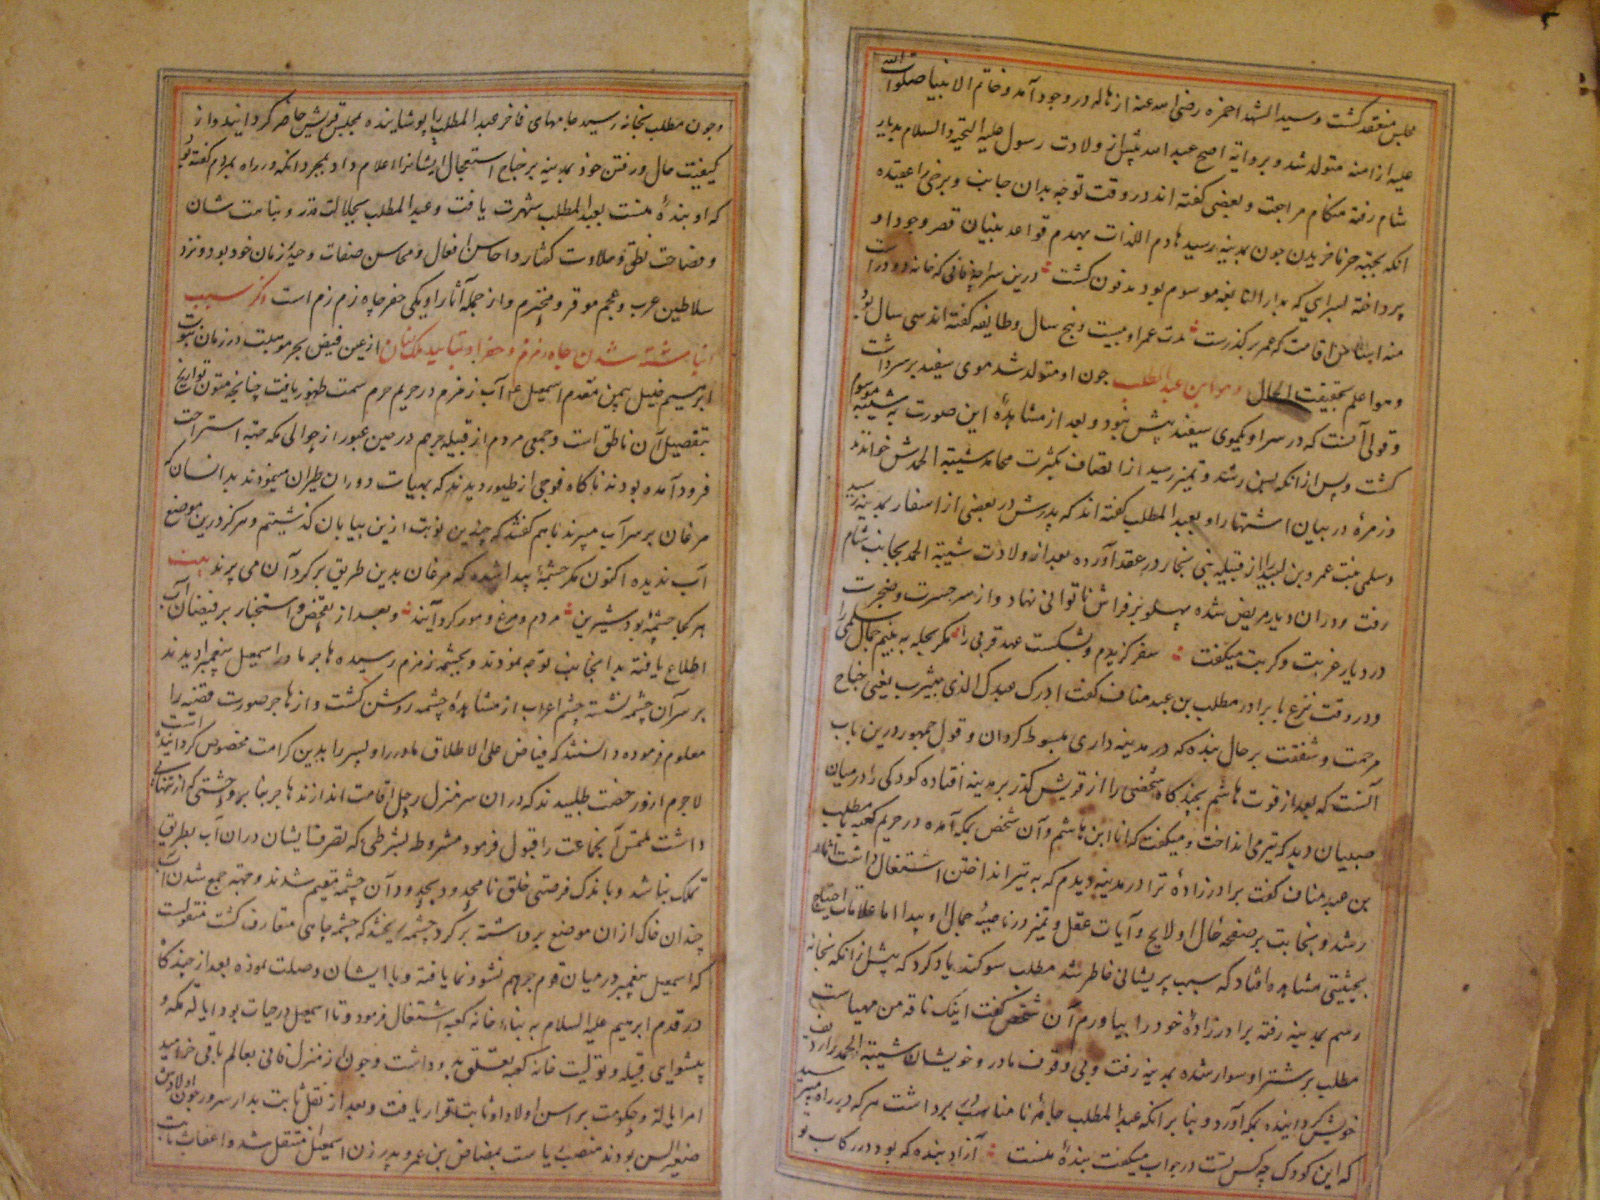 مجلس منعقد گشت و سید الشهدا حمزه رضی الله عنه از هاله در وجود آمد و خاتم الانبیا صلوات الله
علیه از آمنه متولد شد و بروایة اصح عبد الله پیش از ولادت رسول علیه التحیة و السلام بدیار
شام رفته هنگام مراجعت و بعضی گفته اند در وقت توجه بدان جانب و برخی را عقیده
آنکه بجهة خرما خریدن چون بمدینه رسید هادم اللذات بهدم قواعد بنیان قصر وجود او
پرداخته بسرای که بدار النابغه موسوم بود مدفون گشت درین سراچهٔ فانی که خانهٔ دو در است
منه اساس اقامت که عمر بر گذرست مدت عمر او بیست و پنج سال و طایفه گفته اند سی سال بود
و هو اعلم بحقیقت الحال و هو ابن عبد المطلب چون او متولد شد موی سفید بر سر داشت
و قولی آنست که در سر او یکموی سفید بیش نبود و بعد از مشاهدهٔ این صورت به شیبه موسوم
گشت و پس از آنکه بسن رشد و تمیز رسید از اتصاف بکثرت محامد شیبة الحمدش خواندند
و زمرهٔ در بیان اشتهار او بعبد المطلب گفته اند که پدرش در بعضی از اسفار بمدینه رسید
و سلمی بنت عمرو بن لبید را از قبیله بنی نجار در عقد آورده بعد از ولادت شیبة الحمد بجانب شام
رفت و در ان دیار مریض شده پهلو بر فراش ناتوانی نهاد و از سر حسرت و ضجرت
در دیار غربت و کربت میگفت سفر گزیدم و بشکست عهد قربی را مگر بحیله به بینم جمال سلمی را
و در وقت نزع با برادر مطلب بن عبد مناف گفت ادرک عبدک الذی بیثرب یعنی جناح
مرحمت و شفقت بر حال بندهٔ که در مدینه داری مبسوط گردان و قول جمهور درین باب
آنست که بعد از فوت هاشم بچند گاه شخصی را از قریش گذر بر مدینه افتاده کودکی را در میان
صبیان دید که تیر می انداخت و میگفت که انا ابن هاشم و آن شخص بمکه آمده در حریم کعبه با مطلب
بن عبد مناف گفت برادر زادهٔ ترا در مدینه دیدم که به تیر انداختن اشتغال داشت آثار
رشد و نجابت بر صفحهٔ حال او لایح و آیات عقل و تمیز در ناصیهٔ جمال او پیدا اما علامات احتیاج
بحیثیتی مشاهده افتاد که سبب پریشانی خاطر شد مطلب سوگند یاد کرد که پیش از آنکه بخانه
رسم بمدینه رفته برادر زادهٔ خود را بیاورم آن شخص گفت اینک ناقه من مهیاست
مطلب بر شتر او سوار شده بمدینه رفت و بی وقوف مادر و خویشان شیبة الحمد را ردیف
خویش گردانیده بمکه آورد و بنا بر آنکه عبد المطلب جامهٔ نامناسب در بر داشت هر که در راه میپرسید
که این کودک چه کس تست در جواب میگفت بندهٔ منست آزاد بنده که بود در رکاب تو
و چون مطلب بخانه رسید جامهای فاخر عبد المطلب را پوشانیده بمجلس قریش حاضر گردانید و از
کیفیت حال و رفتن خود بمدینه بر جناح استعجال ایشانرا اعلام داد بمجرد آنکه در راه بمردم گفته بود
که او بندهٔ منست بعبد المطلب شهرت یافت و عبد المطلب بجلالت قدر و نباهت شان
و فصاحت نطق و حلاوت گفتار و احاسن افعال و محاسن صفات وحید زمان خود بود و نزد
سلاطین عرب و عجم موقر و محترم و از جمله آثار او یکی حفر چاه زمزم است ذکر سبب
انباشته شدن چاه زمزم و حفر او بتایید ملک منان از عین فیض بحر موهبت در زمان نبوت
ابرهیم خلیل بیمن مقدم اسمعیل آب زمزم در حریم حرم سمت ظهور یافت چنانچه متون تواریخ
بتفصیل آن ناطق است و جمعی مردم از قبیله جرهم در حین عبور از حوالی مکه جهة استراحت
فرود آمده بودند ناگاه فوجی از طیور دیدند که بهیات دوران طیران مینمودند بدانسان که
مرغان بر سر آب میپرند با هم گفتند که چندین نوبت ازین بیابان گذشتیم و هرگز درین موضع
آب ندیده اکنون مگر چشمهٔ پیدا شده که مرغان بدین طریق بر گرد آن می پرند بیت
هر کجا چشمهٔ بود شیرین مردم و مرغ و مور گرد آیند و بعد از تفحص و استخبار بر فیضان آب
اطلاع یافته بدانجانب توجه نمودند و بچشمه زمزم رسیده هاجر مادر اسمعیل پیغمبر را دیدند
بر سر آن چشمه نشسته چشم اعراب از مشاهدهٔ چشمه روشن گشت و از هاجر صورت قصه را
معلوم فرموده دانستند که فیاض علی الاطلاق مادر را و پسر را بدین کرامت مخصوص گردانیده است
لاجرم از او رخصت طلبیدند که در ان سرمنزل رحل اقامت اندازند هاجر بنا بر وحشتی که از تنهایی
داشت ملتمس آنجماعت را قبول فرمود مشروط بشرطی که تصرف ایشان در ان آب بطریق
تملک نباشد و باندک فرصتی خلق نامحدود بحدود آن چشمه مقیم شدند و جهة جمع شدن آب
چندان خاک از ان موضع برداشته بر گرد چشمه ریختند که چشمه چاهی متعارف گشت منقولست
که اسمعیل پیغمبر در میان قوم جرهم نشو و نما یافته و با ایشان وصلت نموده بعد از چند گاه
در قدم ابرهیم علیه السلام به بناء خانه کعبه اشتغال فرمود و تا اسمعیل در حیات بود ایالة مکه و
پیشوای قبیله و تولیت خانه کعبه تعلق بدو داشت و چون از منزل فانی بعالم باقی خرامید
امر ایالة و حکومت بر اسن اولاد او ثابت قرار یافت و بعد از نقل ثابت بدار سرور چون اولادش
صغیر السن بودند منصب ریاست بمضاض بن عمرو پدر زن اسمعیل منتقل شد و اعقاب ثابت